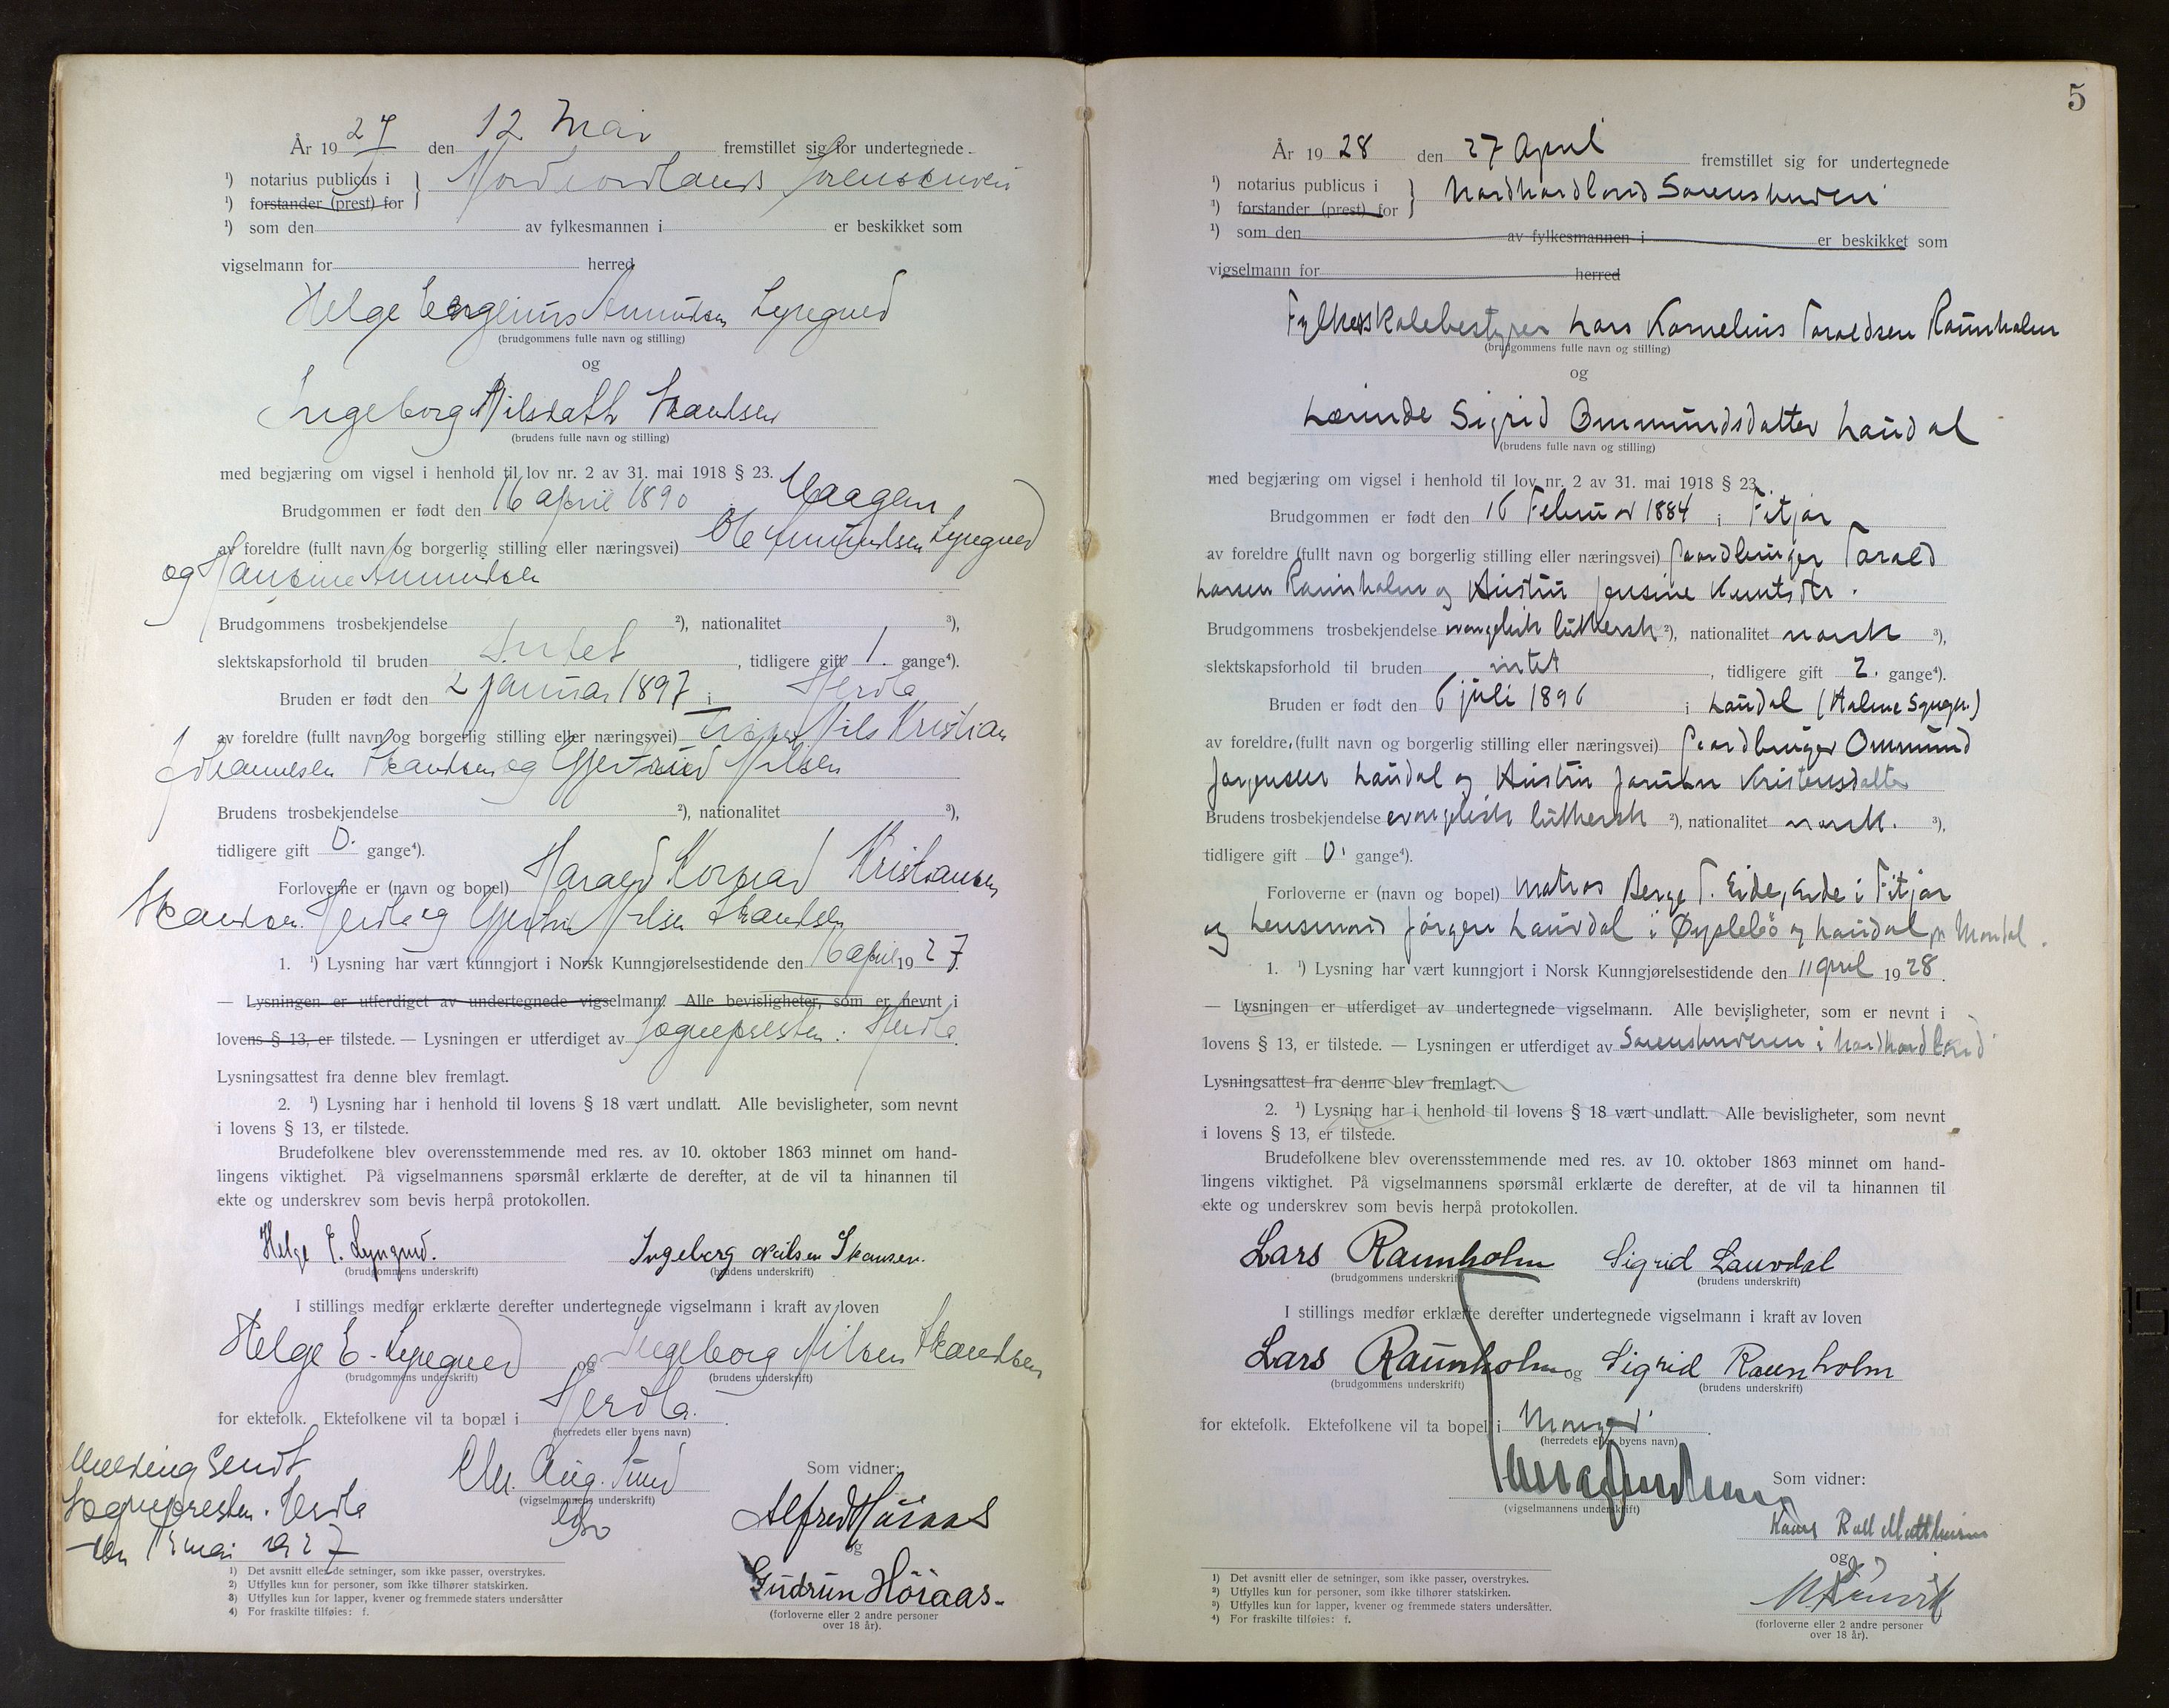 År 1927 den 12 Mai fremstillet sig for undertegnede
¹) notarius publicus i
¹) forstander (prest) for
Nordhordlands sorenskriveri
¹) som den av fylkesmannen i er beskikket som
vigselmann for herred
Helge Amundsen Lyngned
(brudgommens fulle navn og stilling)
og
Ingeborg Nilsdatt Skandsen
(brudens fulle navn og stilling)
med begjæring om vigsel i henhold til lov nr. 2 av 31. mai 1918 § 23.
Brudgommen er født den 16 april 1890
av foreldre (fullt navn og borgerlig stilling eller næringsvei) Ole Amundsen Lyngned
og Hansine Amundsen
Brudgommens trosbekjendelse ²), nationalitet ³),
slektskapsforhold til bruden Intet, tidligere gift 1. gange⁴).
Bruden er født den 2 januar 1897 i Herdla
av foreldre (fullt navn og borgerlig stilling eller næringsvei) Nils Kristian
Johannesen Skandsen og Gjertrud Nilsen
Brudens trosbekjendelse ²), nationalitet ³),
tidligere gift 0. gange⁴).
Forloverne er (navn og bopel) Harald Konrad Kristiansen
Skandsen. Herdla og Nilsen Skandsen
1. ¹) Lysning har vært kunngjort i Norsk Kunngjørelsestidende den 16 april 1927.
— Lysningen er utferdiget av undertegnede vigselmann. Alle bevisligheter, som er nevnt i
lovens § 13, er tilstede. — Lysningen er utferdiget av Sognepresten i Herdla.
Lysningsattest fra denne blev fremlagt.
2. ¹) Lysning har i henhold til lovens § 18 vært undlatt. Alle bevisligheter, som nevnt
i lovens § 13, er tilstede.
Brudefolkene blev overensstemmende med res. av 10. oktober 1863 minnet om hand-
lingens viktighet. På vigselmannens spørsmål erklærte de derefter, at de vil ta hinannen til
ekte og underskrev som bevis herpå protokollen.
Helge E. Lyngned. Ingeborg Nilsen Skansen.
(brudgommens underskrift) (brudens underskrift)
I stillings medfør erklærte derefter undertegnede vigselmann i kraft av loven
Helge E. Lyngned og Ingeborg Nilsen Skandsen
(brudgommens underskrift) (brudens underskrift)
for ektefolk. Ektefolkene vil ta bopæl i Herdla.
(herredets eller byens navn)
Melding sendt
Sognepresten i Herdla
den 13 mai 1927
Chr. Aug. Sund
(vigselmannens underskrift)
Som vidner:
Alfred Höiaas
og
Gudrun Höiaas.
(forloverne eller 2 andre personer
over 18 år).
1) Det avsnitt eller de setninger, som ikke passer, overstrykes.
2) Utfylles kun for personer, som ikke tilhører statskirken.
3) Utfylles kun for lapper, kvener og fremmede staters undersåtter
4) For fraskilte tilføies: f.
5
År 1928 den 27 April fremstillet sig for undertegnede
¹) notarius publicus i
¹) forstander (prest) for
Nordhordland Sorenskriveri
¹) som den av fylkesmannen i er beskikket som
vigselmann for herred
Fylkesskolebestyrer Lars Kornelius Taraldsen Raunholm
(brudgommens fulle navn og stilling)
og
Lærinde Sigrid Ommundsdatter Laudal
(brudens fulle navn og stilling)
med begjæring om vigsel i henhold til lov nr. 2 av 31. mai 1918 § 23
Brudgommen er født den 16 Februar 1884 i Fitjar
av foreldre (fullt navn og borgerlig stilling eller næringsvei) Gaardbruger Tarald
Larsen Raunholm og Hustru Jensine Knutsdtr.
Brudgommens trosbekjendelse evangelisk luthersk ²), nationalitet norsk ³),
slektskapsforhold til bruden intet, tidligere gift 2. gange⁴).
Bruden er født den 6 juli 1896 i Laudal
av foreldre, (fullt navn og borgerlig stilling eller næringsvei) Gaardbruger Ommund
Jørgensen Laudal og Hustru Kristensdatter
Brudens trosbekjendelse evangelisk luthersk ²), nationalitet norsk. ³),
tidligere gift 0. gange⁴).
Forloverne er (navn og bopel) Matros Berge T. Eide, Eide i Fitjar
og Lensmand Jörgen Lauvdal i Øyslebö og Laudal pr Mandal.
1. ¹) Lysning har vært kunngjort i Norsk Kunngjørelsestidende den 11 april 1928.
— Lysningen er utferdiget av undertegnede vigselmann. Alle bevisligheter, som er nevnt i
lovens § 13, er tilstede. — Lysningen er utferdiget av Sorenskriveren i Nordhordland
Lysningsattest fra denne blev fremlagt.
2. ¹) Lysning har i henhold til lovens § 18 vært undlatt. Alle bevisligheter, som nevnt
i lovens § 13, er tilstede.
Brudefolkene blev overensstemmende med res. av 10. oktober 1863 minnet om hand-
lingens viktighet. På vigselmannens spørsmål erklærte de derefter, at de vil ta hinannen til
ekte og underskrev som bevis herpå protokollen.
Lars Raunholm Sigrid Lauvdal
(brudgommens underskrift) (brudens underskrift)
I stillings medfør erklærte derefter undertegnede vigselmann i kraft av loven
Lars Raunholm og Sigrid Raunholm
(brudgommens underskrift) (brudens underskrift)
for ektefolk. Ektefolkene vil ta bopel i Manger
(herredets eller byens navn)
(vigselmannens underskrift)
Som vidner:
Hans Roll Matthiesen
og
(forloverne eller 2 andre personer
over 18 år).
1) Det avsnitt eller de setninger, som ikke passer, overstrykes.
2) Utfylles kun for personer, som ikke tilhører statskirken.
3) Utfylles kun for lapper, kvener og fremmede staters undersåtter.
4) For fraskilte tilføies: f.